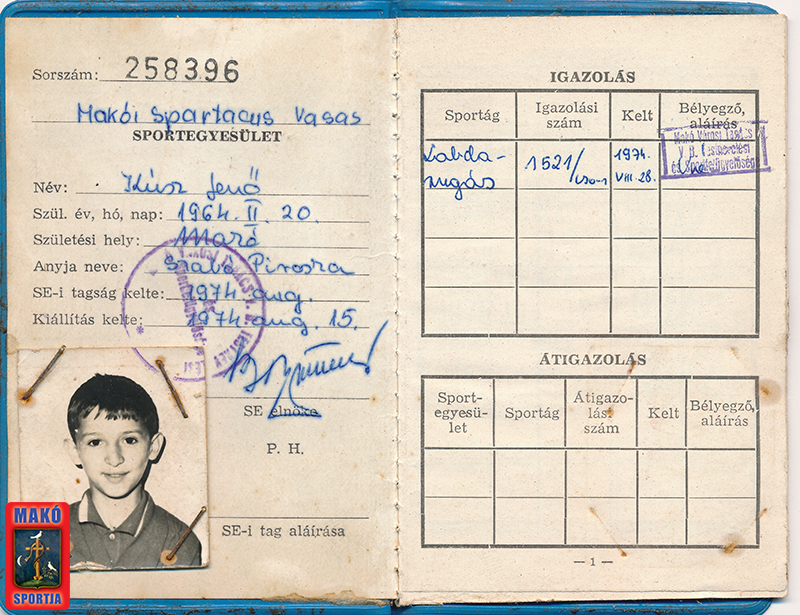 Sorszám: 258396
Makói Spartacus Vasas
SPORTEGYESÜLET
Név: Kúsz Jenő
Szül. év, hó, nap: 1964. II. 20.
Születési hely: Makó
Anyja neve: Szabó Piroska
SE-i tagság kelte: 1974 aug.
Kiállítás kelte: 1974 aug. 15.
SE elnöke
P. H.
SE-i tag aláírása
MAKÓ
SPORTJA
IGAZOLÁS
Sportág
Igazolási szám
Kelt
Bélyegző, aláírás
Labda-
rúgás
1521/
1974.
VIII. 28.
Makó Városi Tanács
V. B.
ÁTIGAZOLÁS
Sport-
egyesü-
let
Sportág
Átigazo-
lási
szám
Kelt
Bélyegző,
aláírás
— 1 —